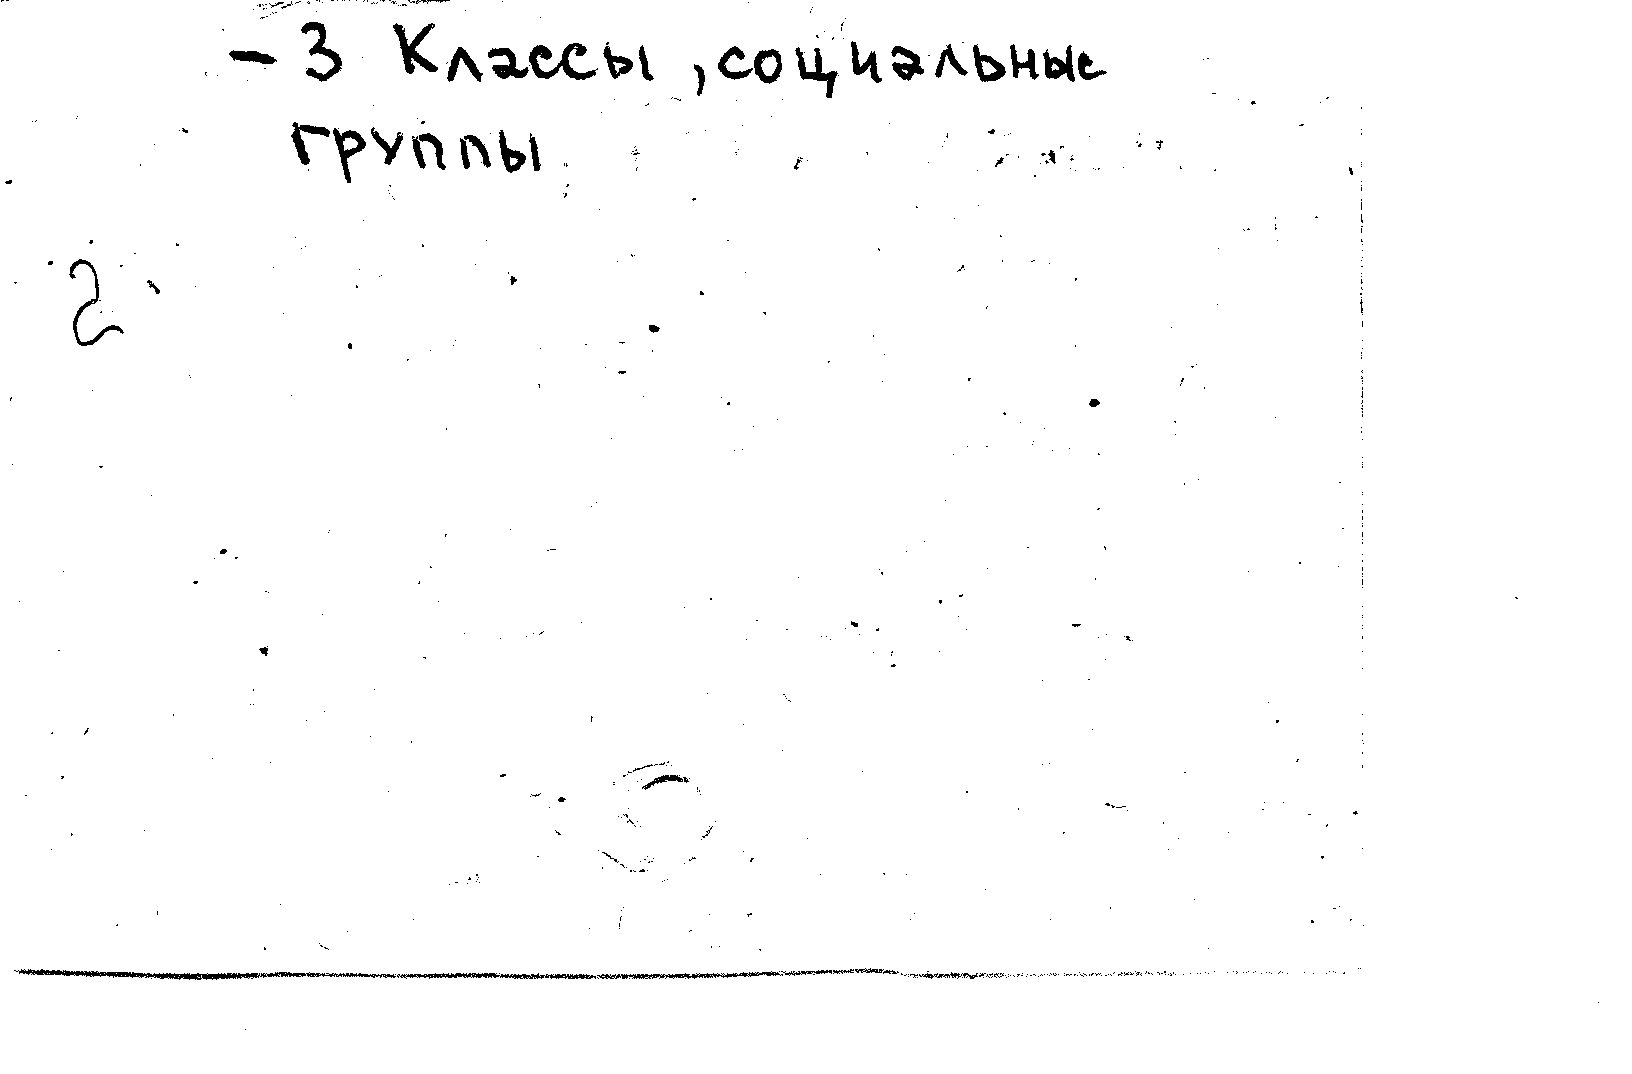 - 3 Классы, социальные
группы
2